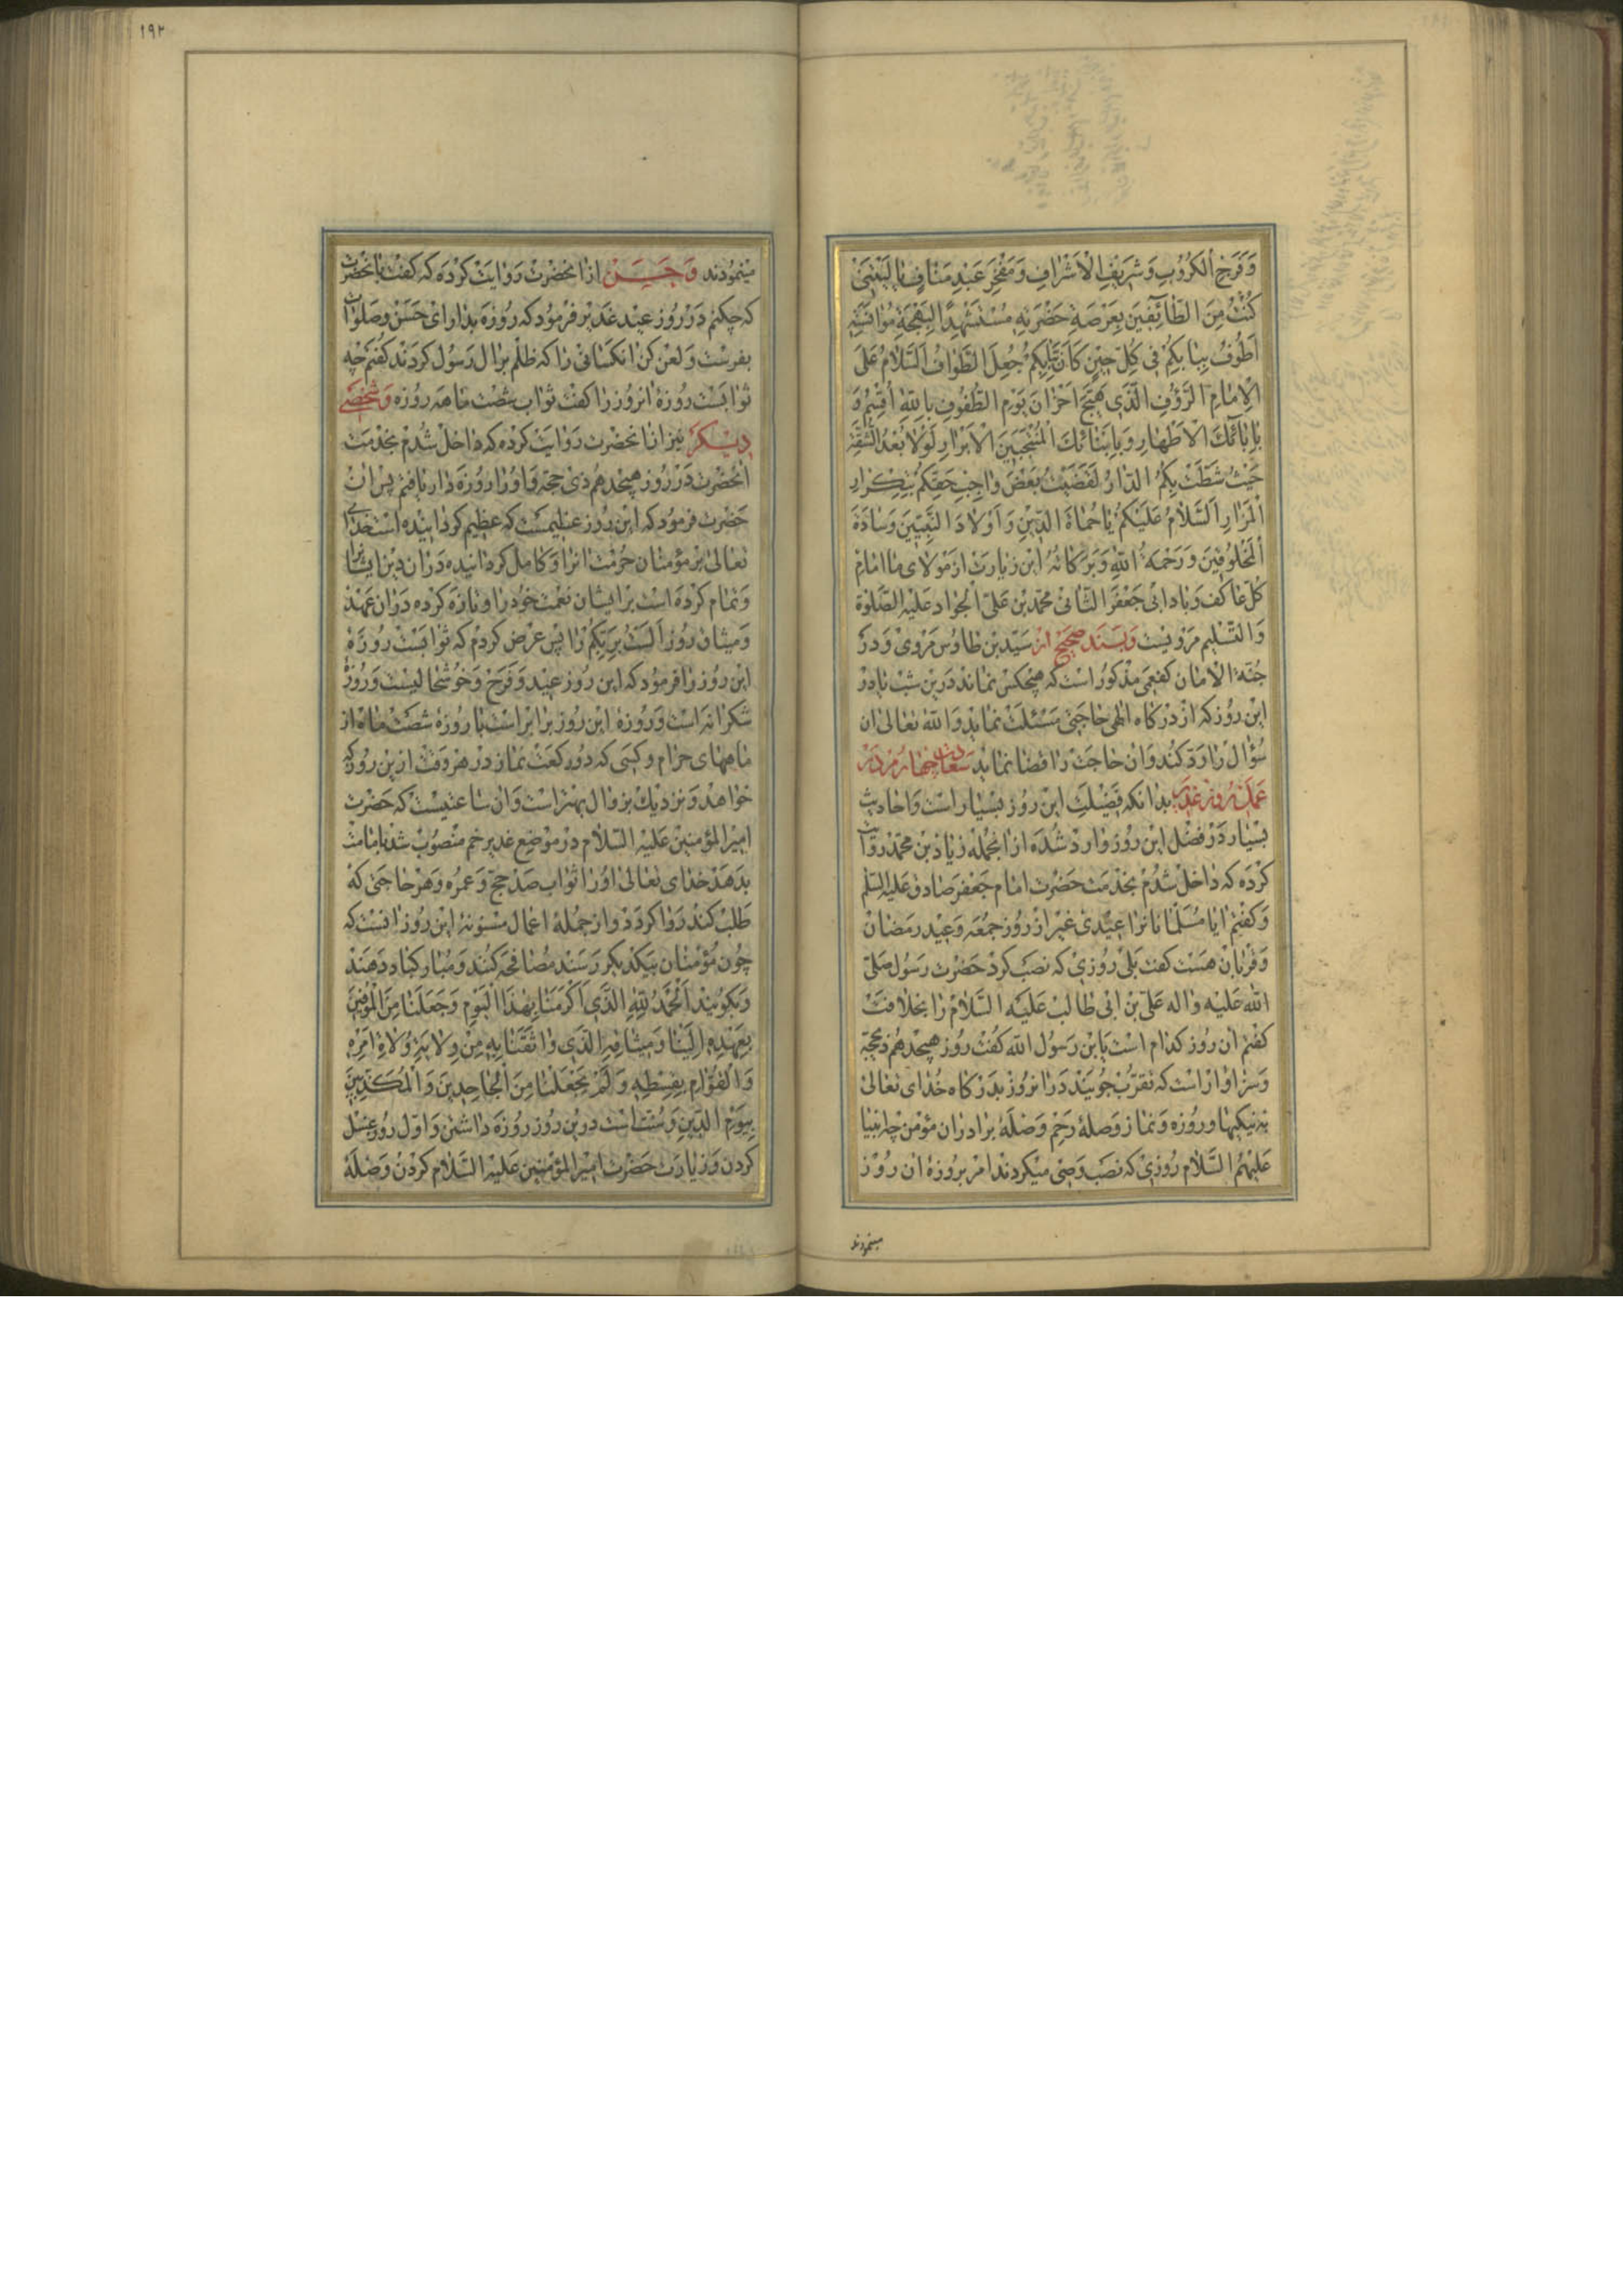 وَفَرَجِ الْكُرُوبِ وَشَرِيفِ الْاَشْرَافِ وَمَفْخَرِ عَبْدِ مَنَافٍ يَا لَيْتَنِي
كُنْتُ مِنَ الطَّائِفِينَ بِعَرْصَةِ حَضْرَتِهِ مُسْتَشْهِدًا لِبَهْجَةِ مُؤَانَسَتِهِ
اَطُوفُ بِبَابِكُمْ فِي كُلِّ حِينٍ كَاَنَّ بِبَابِكُمْ جُعِلَ الطَّوَافُ اَلسَّلَامُ عَلَى
الْاِمَامِ الرَّؤُفِ الَّذِي هَيَّجَ اَحْزَانَ يَوْمِ الطُّفُوفِ بِاللّٰهِ اُقْسِمُ وَ
بِاٰبَائِكَ الْاَطْهَارِ وَبِاَبْنَائِكَ الْمُنْتَجَبِينَ الْاَبْرَارِ لَوْلَا بُعْدُ الشُّقَّةِ
حَيْثُ شَطَّتْ بِكُمُ الدَّارُ لَقَضَيْتُ بَعْضَ وَاجِبِ حَقِّكُمْ بِتِكْرَارِ
الْمَزَارِ اَلسَّلَامُ عَلَيْكُمْ يَا حُمَاةَ الدِّينِ وَاَوْلَادَ النَّبِيِّينَ وَسَادَةَ
الْمَخْلُوقِينَ وَرَحْمَةُ اللّٰهِ وَبَرَكَاتُهُ این زیارت از مولای ما امام
کل عاکف و بادابی جعفر الثانی محمد بن علی الجواد علیه الصلوة
والتسلیم مرویست و بسند صحیح از سید بن طاوس مروی و در
جنة الامان کفعمی مذکور است که هیچکس نماند درین شب یا در
این روز که از درکاه الهی حاجتی مسئلت نماید والله تعالی ان
سؤال را رد کند و ان حاجت را قضا ننماید سعادت چهارم در
عمل روز غدیر بدانکه فضیلت این روز بسیار است و احادیث
بسیار در فضل این روز وارد شده ازانجمله زیاد بن محمد روایت
کرده که داخل شدم بخدمت حضرت امام جعفر صادق علیه السلم
و کفتم ایا مسلمانانرا عیدی غیر از روز جمعه و عید رمضان
و قربان هست کفت بلی روزی که نصب کرد حضرت رسول صلی
الله علیه واله علی بن ابی طالب علیه السلام را بخلافت
کفتم ان روز کدام است یابن رسول الله کفت روز هیجدهم ذیحجة
و سزاوار است که تقرب جویند در انروز بدرکاه خدای تعالی
بنیکیها و روزه و نماز و صلهٔ رحم و صلهٔ برادران مؤمن چه انبیا
علیهم السلام روزی که نصب وصی میکردند امر بروزهٔ ان روز
مینمودند
۱۹۲
مینمودند و حسن ازانحضرت روایت کرده که کفت بانحضرت
که چکنم در روز عید غدیر فرمود که روزه بدار ای حسن و صلوات
بفرست و لعن کن انکسانی را که ظلم بر ال رسول کردند کفتم چه
ثوابست روزهٔ انروز را کفت ثواب شصت ماهه روزه و شخصی
دیگر نیز ازانحضرت روایت کرده که داخل شدم بخدمت
انحضرت در روز هیجدهم ذی حجه و او را روزه دار یافتم پس ان
حضرت فرمود که این روز عظیمست که عظیم کردانیده است خدای
تعالی بر مؤمنان حرمت انرا و کامل کردانیده دران دین ایشانرا
و تمام کرده است بر ایشان نعمت خود را و تازه کرده دران عهد
و میثاق روز الست بربکم را پس عرض کردم که ثوابست روزهٔ
این روز را فرمود که این روز عید و فرح و خوشحالیست و روز
شکرانه است و روزهٔ این روز برابر است با روزهٔ شصت ماه از
ماههای حرام و کسی که دو رکعت نماز در هر وقت ازین روز که
خواهد و نزدیك بزوال بهتر است و ان ساعتیست که حضرت
امیرالمؤمنین علیه السلام در موضع غدیر خم منصوب شد بامامت
بدهد خدای تعالی او را ثواب صد حج و عمره و هر حاجتی که
طلب کند روا کردد و از جملهٔ اعمال مسنونهٔ این روز انست که
چون مؤمنان بیکدیکر رسند مصافحه کنند و مبارکباد دهند
و بکویند اَلْحَمْدُ لِلّٰهِ الَّذِي اَكْرَمَنَا بِهٰذَا الْيَوْمِ وَجَعَلَنَا مِنَ الْمُوفِينَ
بِعَهْدِهِ اِلَيْنَا وَمِيثَاقِهِ الَّذِي وَاثَقَنَا بِهِ مِنْ وِلَايَةِ وُلَاةِ اَمْرِهِ
وَالْقُوَّامِ بِقِسْطِهِ وَلَمْ يَجْعَلْنَا مِنَ الْجَاحِدِينَ وَالْمُكَذِّبِينَ
بِيَوْمِ الدِّينِ و سنت است درین روز روزه داشتن و اول روز غسل
کردن و زیارت حضرت امیرالمؤمنین علیه السلام کردن و صلهٔ